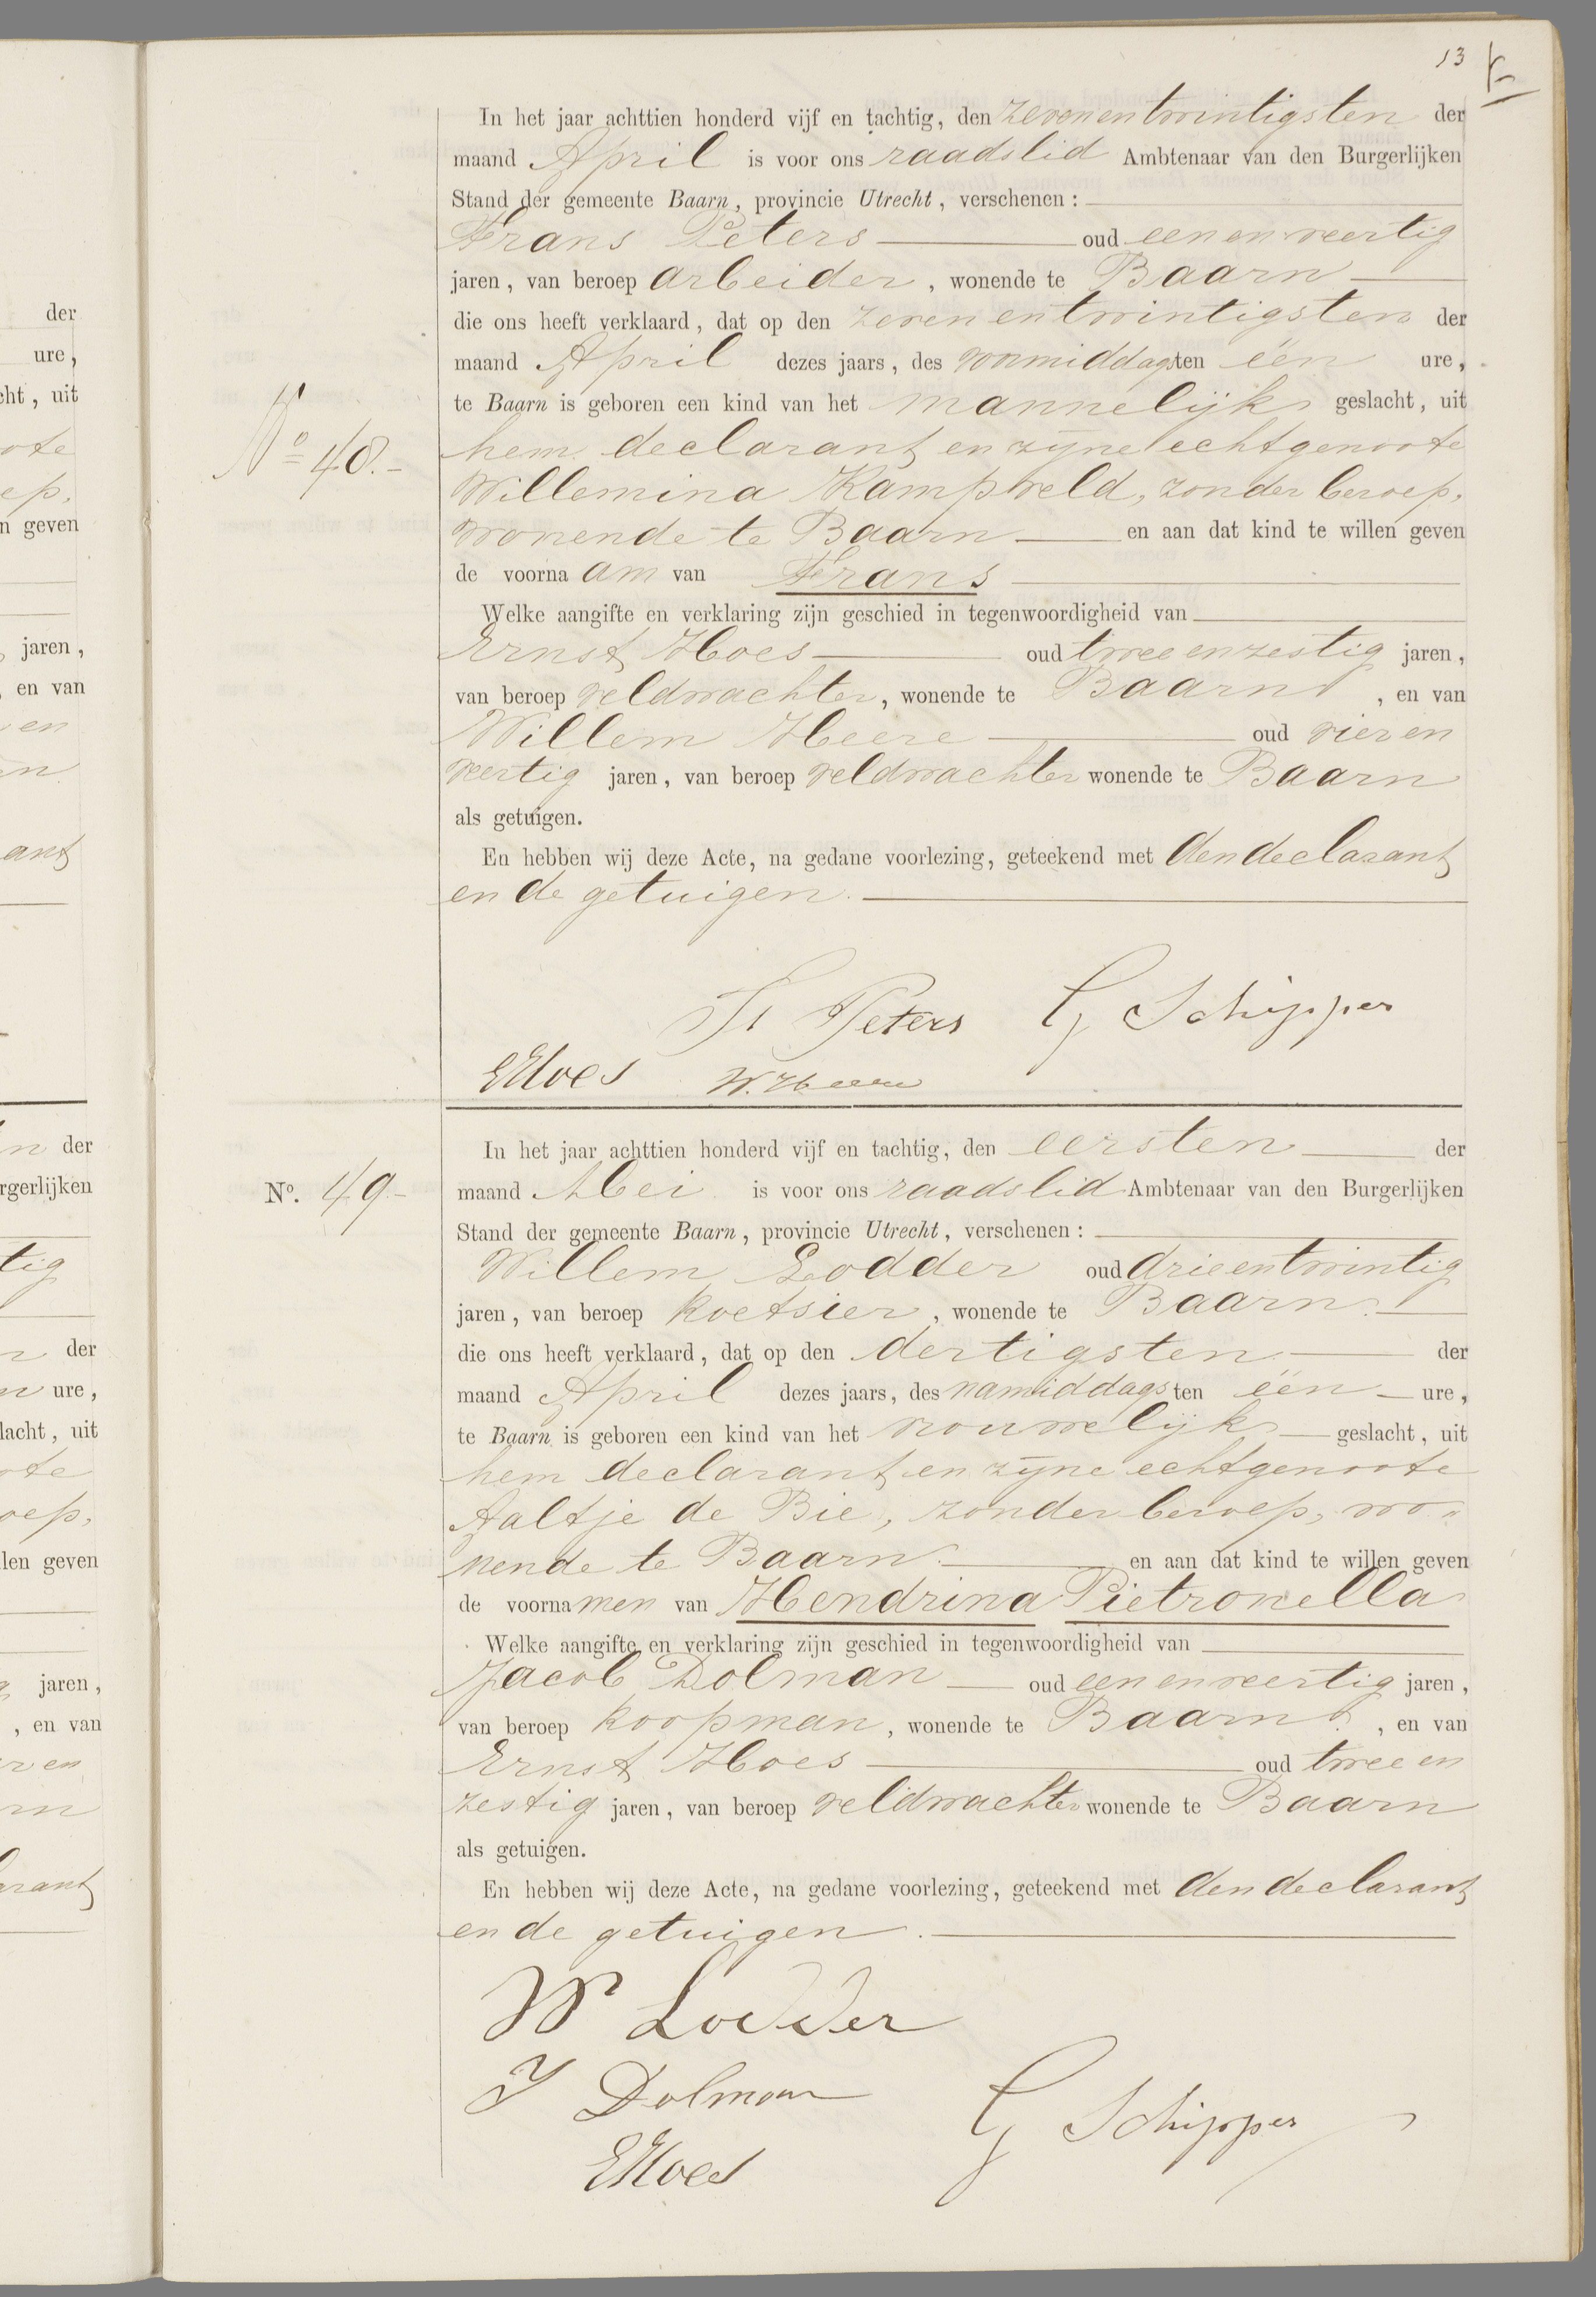 13
In het jaar achttien honderd vijf en tachtig, den zevenentwintigsten der
maand April is voor ons raadslid Ambtenaar van den Burgerlijken
Stand der gemeente Baarn, provincie Utrecht, verschenen:
Frans Peters oud eenenveertig
jaren, van beroep arbeider, wonende te Baarn
die ons heeft verklaard, dat op den zevenentwintigsten der
maand April dezes jaars, des voormiddagsten één ure,
te Baarn is geboren een kind van het mannelijk geslacht, uit
No 48.-
hem declarant en zijne echtgenoote
Willemina Kampveld, zonder beroep,
wonende te Baarn en aan dat kind te willen geven
de voornaam van Frans
Welke aangifte en verklaring zijn geschied in tegenwoordigheid van
Ernst Hoes oud tweeenzestig jaren,
van beroep veldwachter, wonende te Baarn, en van
Willem Heere oud vieren
veertig jaren, van beroep veldwachter wonende te Baarn
als getuigen.
En hebben wij deze Acte, na gedane voorlezing, geteekend met den declarant
en de getuigen.
Fr Peters G Schipper
EHoes W. Heere
In het jaar achttien honderd vijf en tachtig, den eersten der
No. 49-
maand Mei is voor ons raadslid Ambtenaar van den Burgerlijken
Stand der gemeente Baarn, provincie Utrecht, verschenen:
Willem Lodder oud drieentwintig
jaren, van beroep koetsier, wonende te Baarn.
die ons heeft verklaard, dat op den dertigsten der
maand April dezes jaars, des namiddagsten één ure,
te Baarn is geboren een kind van het vrouwelijk geslacht, uit
hem declarant en zijne echtgenoote
Aaltje de Bie, zonder beroep, wo„
nende te Baarn en aan dat kind te willen geven
de voornamen van Hendrina Pietronella
Welke aangifte en verklaring zijn geschied in tegenwoordigheid van
Jacob Dolman oud eenenveertig jaren,
van beroep koopman, wonende te Baarn, en van
Ernst Hoes oud tweeen
zestig jaren, van beroep veldwachter wonende te Baarn
als getuigen.
En hebben wij deze Acte, na gedane voorlezing, geteekend met den declarant
en de getuigen.
W Lodder
J Dolman
G Schipper
EHoes